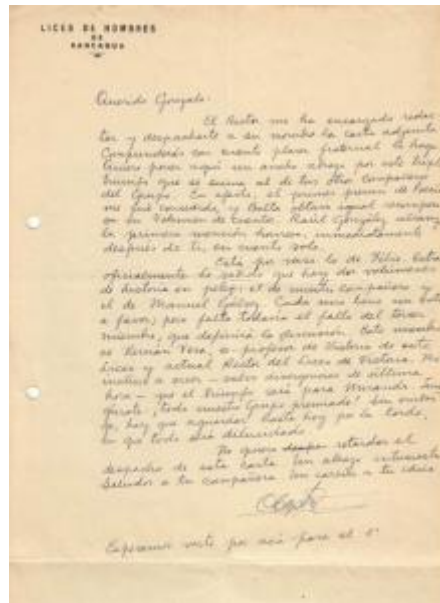 LICEO DE HOMBRES
DE
RANCAGUA
Querido Gonzalo:
El Rector me ha encargado redac
tar y despacharte a su nombre la carta adjunta.
Comprenderás con cuanto placer fraternal lo hago.
Quiero poner aquí un ancho abrazo por este triple
triunfo que se suma al de tus otros compañeros
del Grupo. En efecto, el primer premio de Poesía
me fué concedido, y Balta obtuvo igual recompensa
en su Volumen de Cuentos. Raúl González alcanzó
la primera mención honrosa, inmediatamente
después de ti, en cuento solo.
Está por verse lo de Félix. Extra
oficialmente he sabido que hay dos volúmenes
de historia en juego: el de nuestro compañero y
el de Manuel Gálvez. Cada uno tiene un voto
a favor; pero falta todavía el fallo del tercer
miembro, que definirá la discusión. Este miembro
es Hernán Vera, ex profesor de Historia de este
Liceo y actual Rector del Liceo de Victoria. Me
inclino a creer - salvo divergencias de última
hora - que el triunfo será para Miranda.
todo nuestro Grupo premiado! Sin embar
go, hay que aguardar hasta hoy por la tarde,
en que todo será dilucidado.
No quiero retardar el
despacho de esta carta. Un abrazo
Saludos a tu compañera. Un cariño a tu
Esperamos verte por acá para el